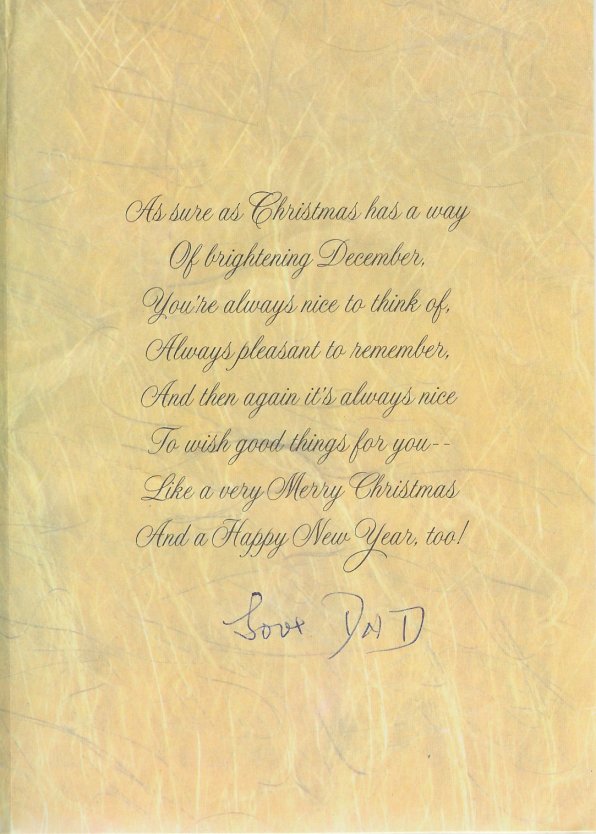 As sure as Christmas has a way
Of brightening December,
You're always nice to think of,
Always pleasant to remember,
And then again it's always nice
To wish good things for you--
Like a very Merry Christmas
And a Happy New Year, too!
Love DND